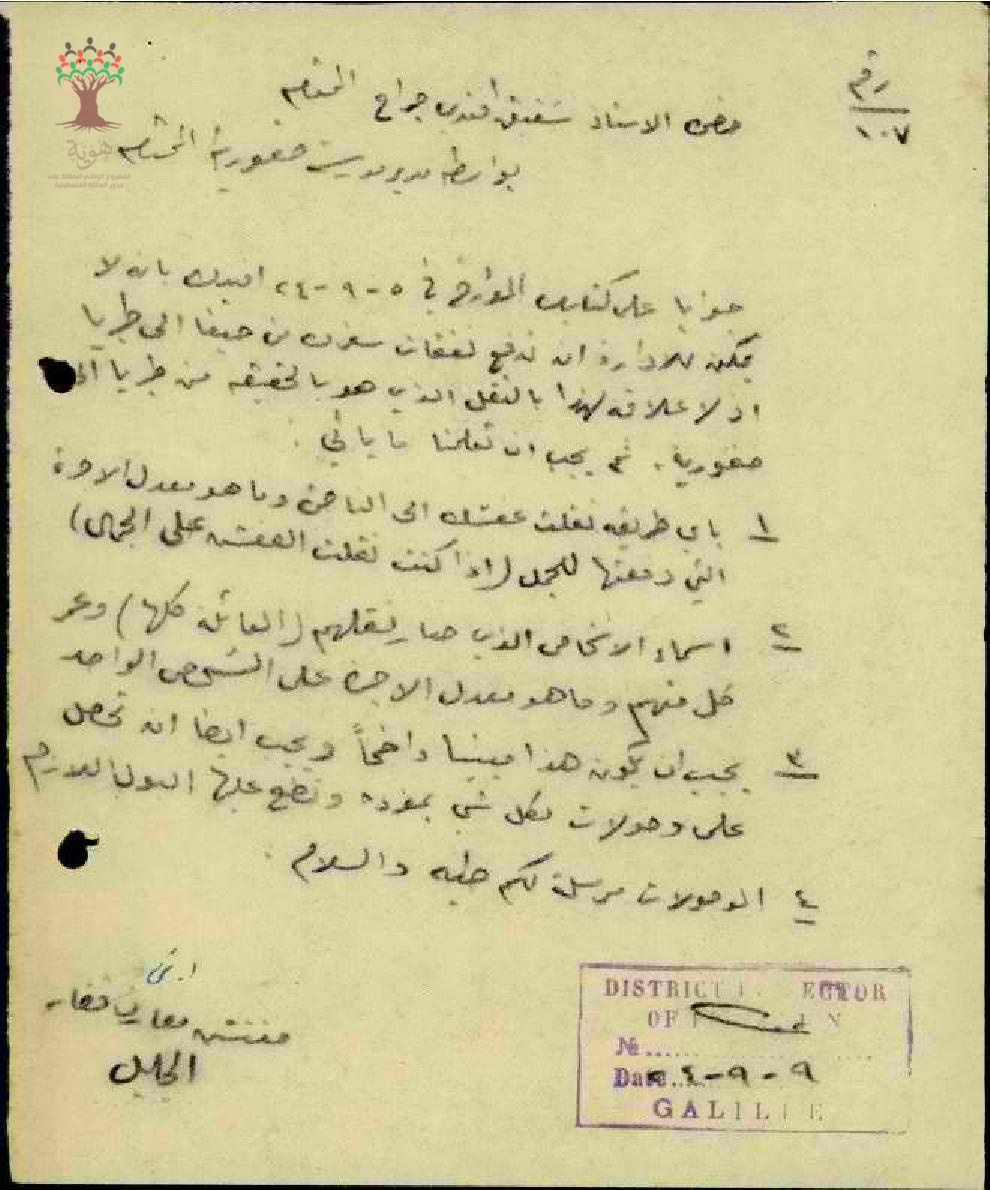 رقم
١٠٧
حضرة الاستاذ شفيق افندي جراح المحترم
بواسطة مدير مدرسة صفورية المحترم
هوية
جوابا على كتابك المؤرخ في ٥-٩-٢٤ افيدك بانه لا
يمكن للادارة ان تدفع نفقات سفرك من حيفا الى طبريا
اذ لا علاقة لهذا بالنقل الذي هو بالحقيقه من طبريا الى
صفورية. ثم يجب ان تعلمنا ما يأتي :
١ باي طريقه نقلت عفشك الى الناصرة وما هو معدل الاجرة
التي دفعتها للجمل (اذا كنت نقلت العفش على الجمال)
٢ اسماء الاشخاص الذي صار نقلهم (العائلة كلها) وعمر
كل منهم وما هو معدل الاجرة على الشخص الواحد
٣ يجب ان يكون هذا مبينا واضحاً ويجب ايضا ان تحصل
على وصولات بكل شي بمفرده وتضع عليها البول اللازم
٤ الوصولات مرسلة لكم طيه والسلام .
مفتش معارف قضاء
الجليل
DISTRICT INSPECTOR
OF
No.....
Date ٢٤-٩-٩
GALILEE